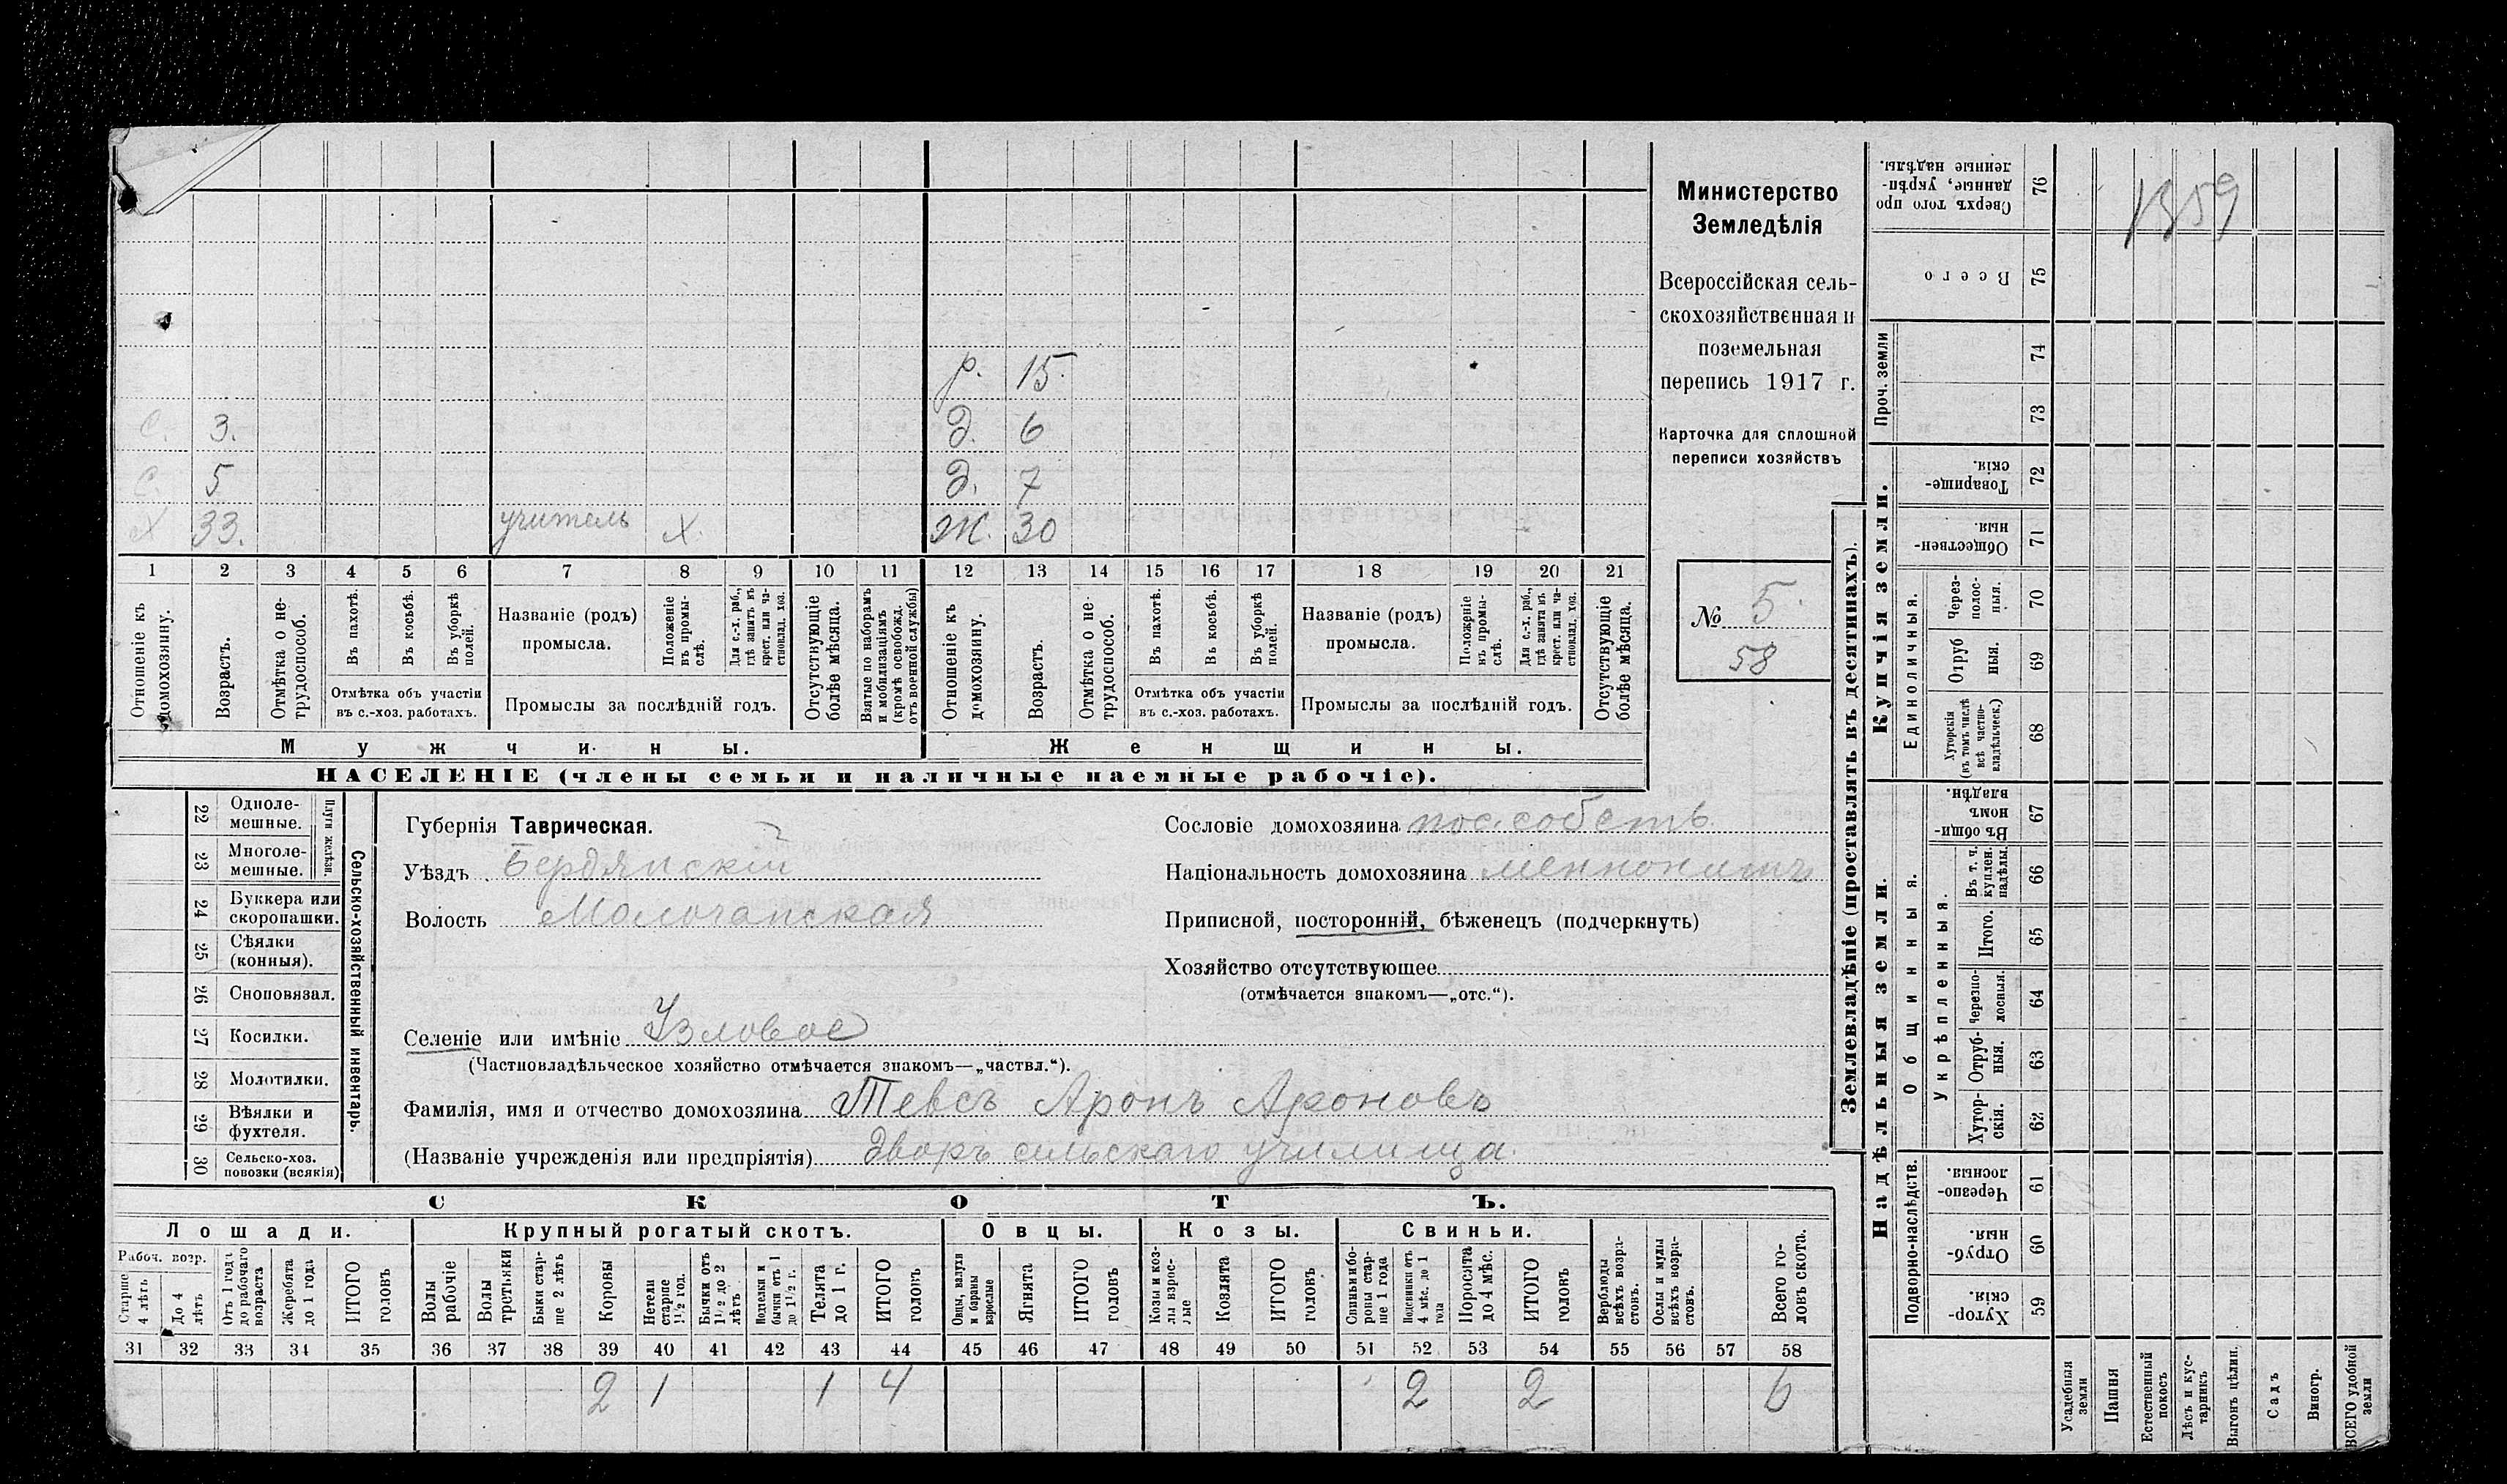 Министерство
Земледѣлія
Всероссійская сель-
скохозяйственная и
поземельная
перепись 1917 г.
Карточка для сплошной
переписи хозяйствъ
№ 5.
58
1359
р. 15.
С. 3. д. 6
С. 5 д. 7
Х 33. учитель х. Ж. 30
1 2 3 4 5 6 7 8 9 10 11 12 13 14 15 16 17 18 19 20 21
Отношеніе къ домохозяину.
Возрастъ.
Отмѣтка о не-трудоспособ.
Въ пахотѣ.
Въ косьбѣ.
Въ уборкѣ полей.
Отмѣтка объ участіи
въ с.-хоз. работахъ.
Названіе (родъ)
промысла.
Положеніе въ промы-слѣ.
Для с.-х. раб., гдѣ занятъ въ крест. или ча-стновлад. хоз.
Промыслы за послѣдній годъ.
Отсутствующіе болѣе мѣсяца.
Взятые по наборамъ и мобилизаціямъ (кромѣ освобожд. отъ военной службы)
Отношеніе къ домохозяину.
Возрастъ.
Отмѣтка о не-трудоспособ.
Въ пахотѣ.
Въ косьбѣ.
Въ уборкѣ полей.
Отмѣтка объ участіи
въ с.-хоз. работахъ.
Названіе (родъ)
промысла.
Положеніе въ промы-слѣ.
Для с.-х. раб., гдѣ занята въ крест. или ча-стновлад. хоз.
Промыслы за послѣдній годъ.
Отсутствующіе болѣе мѣсяца.
Мужчины. Женщины.
НАСЕЛЕНІЕ (члены семьи и наличные наемные рабочіе).
Сельско-хозяйственный инвентарь.
Плуги желѣзн.
22 Одноле-мешные.
23 Многоле-мешные.
24 Буккера или скоропашки.
25 Сѣялки (конныя).
26 Сноповязал.
27 Косилки.
28 Молотилки.
29 Вѣялки и фухтеля.
30 Сельско-хоз. повозки (всякія)
Губернія Таврическая.
Уѣздъ Бердянскій
Волость Молочанская
Сословіе домохозяина пос. собств.
Національность домохозяина меннонитъ
Приписной, посторонній, бѣженецъ (подчеркнуть)
Хозяйство отсутствующее
(отмѣчается знакомъ—„отс.“).
Селеніе или имѣніе Узловое
(Частновладѣльческое хозяйство отмѣчается знакомъ—„частвл.“).
Фамилія, имя и отчество домохозяина Тевсъ Аронъ Ароновъ
(Названіе учрежденія или предпріятія) Дворъ сельскаго училища.
СКОТЪ.
Лошади. Крупный рогатый скотъ. Овцы. Козы. Свиньи.
Рабоч. возр.
Старше 4 лѣтъ
До 4 лѣтъ
Отъ 1 года до рабочаго возраста
Жеребята до 1 года
ИТОГО головъ
Волы рабочіе
Волы третьяки
Быки стар-ше 2 лѣтъ
Коровы
Нетели старше 1½ год.
Бычки отъ 1½ до 2 лѣтъ
Подтелки и бычки отъ 1 до 1½ г.
Телята до 1 г.
ИТОГО головъ
Овцы, валухи и бараны взрослые
Ягнята
ИТОГО головъ
Козы и коз-лы взрос-лые
Козлята
ИТОГО головъ
Свиньи и бо-ровы стар-ше 1 года
Подсвинки отъ 4 мѣс. до 1 года
Поросята до 4 мѣс.
ИТОГО головъ
Верблюды всѣхъ возра-стовъ.
Ослы и мулы всѣхъ возра-стовъ.
Всего го-ловъ скота.
31 32 33 34 35 36 37 38 39 40 41 42 43 44 45 46 47 48 49 50 51 52 53 54 55 56 57 58
2 1 1 4 2 2 6
Землевладѣніе (проставлять въ десятинахъ).
Сверхъ того про-данные, укрѣп-ленные надѣлы. 76
Всего 75
Проч. земли
74
73
Купчія земли.
Товарище-скія. 72
Обществен-ныя. 71
Единоличныя.
Через-полос-ныя. 70
Отруб-ныя. 69
Хуторскія (въ томъ числѣ всѣ частно-владѣльческ.) 68
Надѣльныя земли.
Общинныя.
Въ общин-номъ владѣн. 67
Укрѣпленныя.
Въ т. ч. куплен. надѣлы. 66
Итого. 65
Черезпо-лосныя. 64
Отруб-ныя. 63
Хутор-скія. 62
Подворно-наслѣдств.
Черезпо-лосныя. 61
Отруб-ныя. 60
Хутор-скія. 59
Усадебныя земли
Пашня
Естественный покосъ
Лѣсъ и кус-тарникъ
Выгонъ цѣлин.
Садъ
Виногр.
ВСЕГО удобной земли